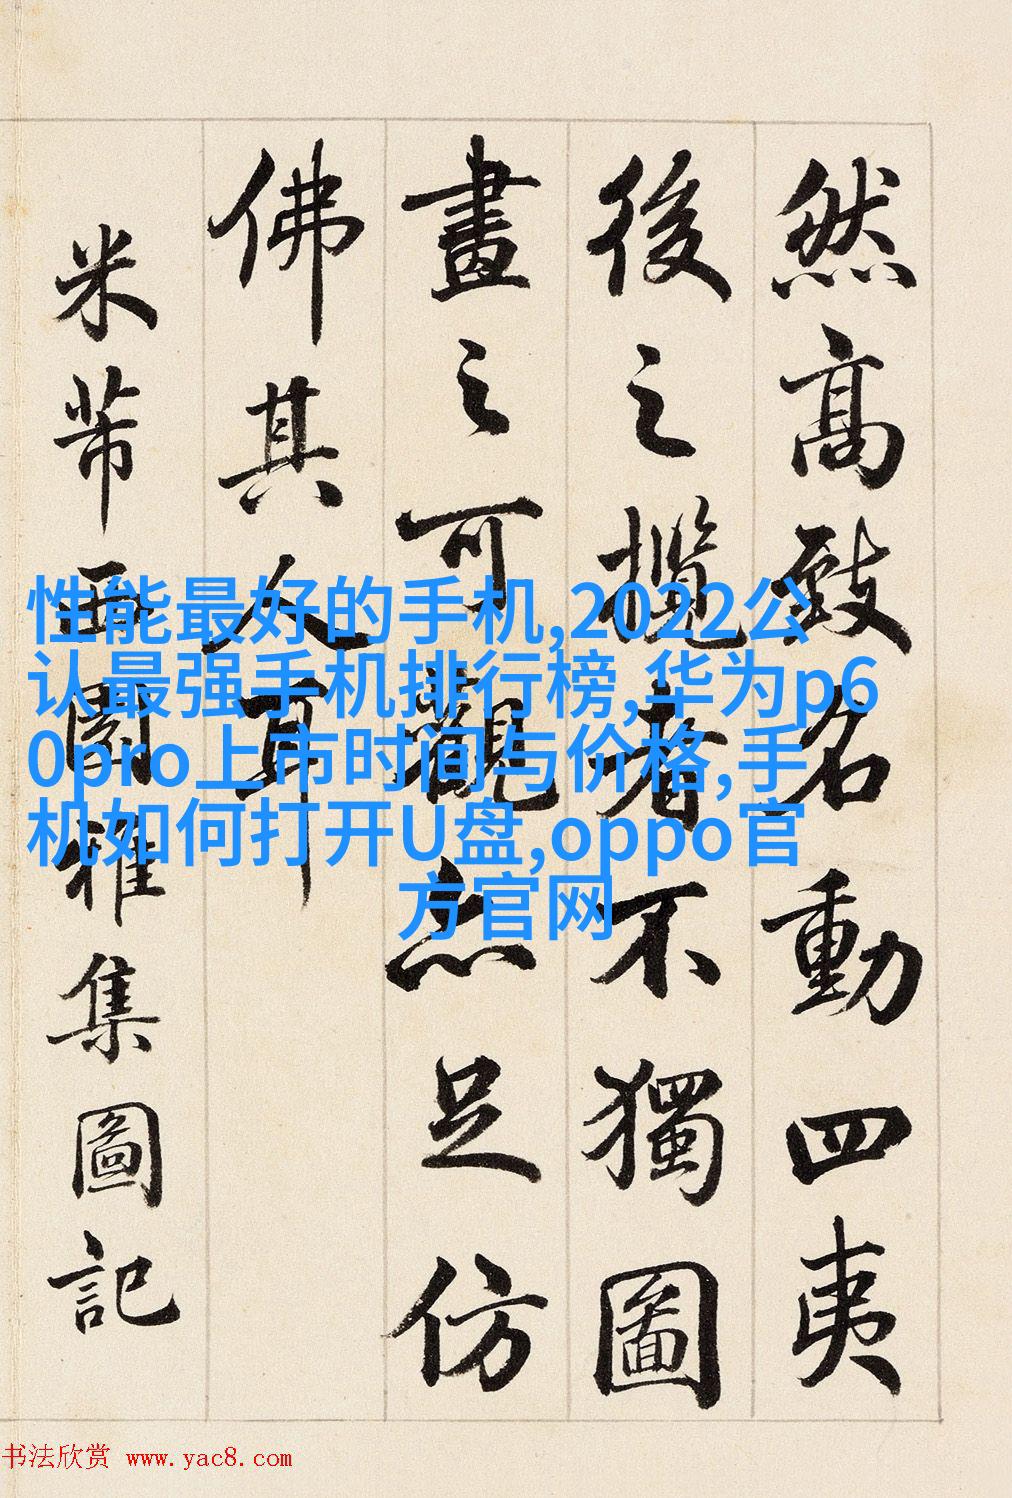 然高致名動四夷
後之攬者不獨圖
畫之可觀亦足仿
佛其人耳
米芾西園雅集圖記
性能最好的手机,2022公
认最强手机排行榜,华为p6
0pro上市时间与价格,手
机如何打开U盘,oppo官
方官网
书法欣赏 www.yac8.com